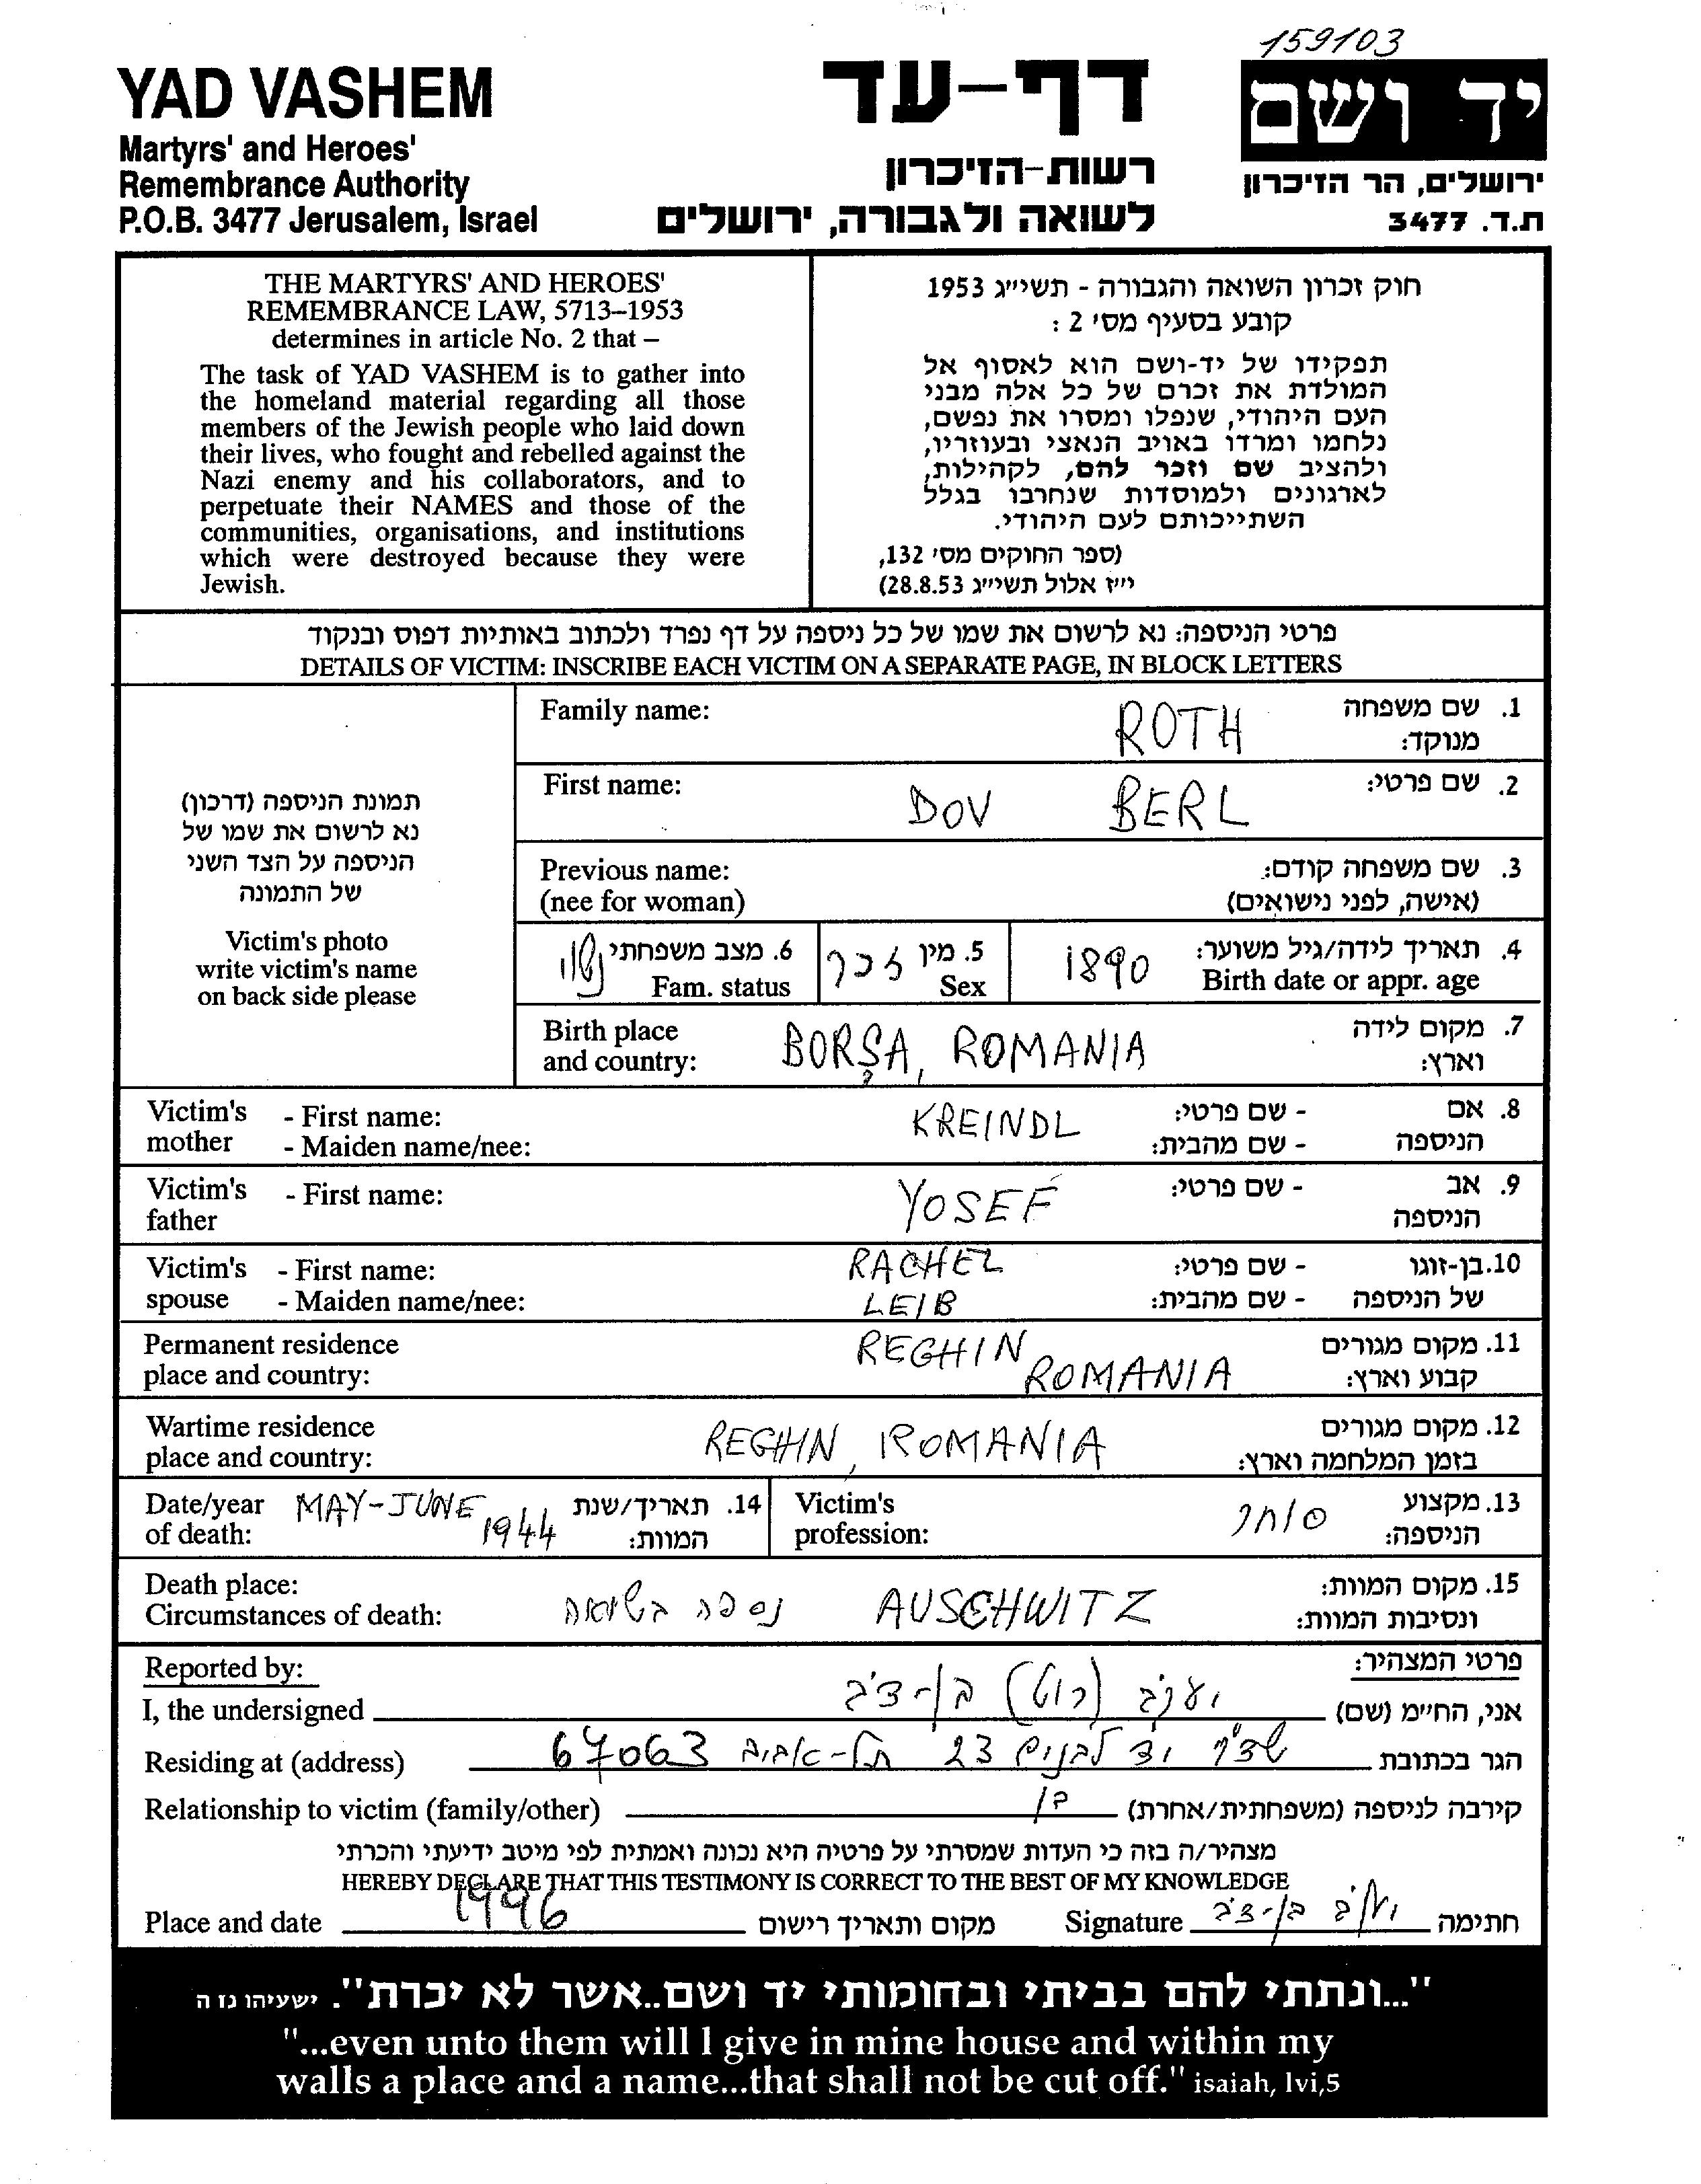 159103
YAD VASHEM
Martyrs' and Heroes'
Remembrance Authority
P.O.B. 3477 Jerusalem, Israel
דף-עד
רשות-הזיכרון
לשואה ולגבורה, ירושלים
יד ושם
ירושלים, הר הזיכרון
ת.ד. 3477
THE MARTYRS' AND HEROES'
REMEMBRANCE LAW, 5713–1953
determines in article No. 2 that –
The task of YAD VASHEM is to gather into
the homeland material regarding all those
members of the Jewish people who laid down
their lives, who fought and rebelled against the
Nazi enemy and his collaborators, and to
perpetuate their NAMES and those of the
communities, organisations, and institutions
which were destroyed because they were
Jewish.
חוק זכרון השואה והגבורה - תשי״ג 1953
קובע בסעיף מס׳ 2 :
תפקידו של יד-ושם הוא לאסוף אל
המולדת את זכרם של כל אלה מבני
העם היהודי, שנפלו ומסרו את נפשם,
נלחמו ומרדו באויב הנאצי ובעוזריו,
ולהציב שם וזכר להם, לקהילות,
לארגונים ולמוסדות שנחרבו בגלל
השתייכותם לעם היהודי.
(ספר החוקים מס׳ 132,
י״ז אלול תשי״ג 28.8.53)
פרטי הניספה: נא לרשום את שמו של כל ניספה על דף נפרד ולכתוב באותיות דפוס ובנקוד
DETAILS OF VICTIM: INSCRIBE EACH VICTIM ON A SEPARATE PAGE, IN BLOCK LETTERS
תמונת הניספה (דרכון)
נא לרשום את שמו של
הניספה על הצד השני
של התמונה
Victim's photo
write victim's name
on back side please
Family name: ROTH 1. שם משפחה
מנוקד:
First name: DOV BERL 2. שם פרטי:
Previous name: 3. שם משפחה קודם:
(nee for woman) (אישה, לפני נישואים)
נשוי 6. מצב משפחתי זכר 5. מין 1890 4. תאריך לידה/גיל משוער:
Fam. status Sex Birth date or appr. age
Birth place BORŞA, ROMANIA 7. מקום לידה
and country: וארץ:
Victim's - First name: KREINDL - שם פרטי: 8. אם
mother - Maiden name/nee: - שם מהבית: הניספה
Victim's - First name: YOSEF - שם פרטי: 9. אב
father הניספה
Victim's - First name: RACHEL - שם פרטי: 10.בן-זוגו
spouse - Maiden name/nee: LEIB - שם מהבית: של הניספה
Permanent residence REGHIN 11. מקום מגורים
place and country: ROMANIA קבוע וארץ:
Wartime residence REGHIN, ROMANIA 12. מקום מגורים
place and country: בזמן המלחמה וארץ:
Date/year MAY-JUNE 14. תאריך/שנת Victim's 13. מקצוע
of death: 1944 המוות: profession: סוחר הניספה:
Death place: 15. מקום המוות:
Circumstances of death: נספה בשואה AUSCHWITZ ונסיבות המוות:
Reported by: פרטי המצהיר:
I, the undersigned (רוט) בן-צבי אני, החיימ (שם)
Residing at (address) יד לבנים 23 תל-אביב 67063 הגר בכתובת
Relationship to victim (family/other) בן קירבה לניספה (משפחתית/אחרת)
מצהיר/ה בזה כי העדות שמסרתי על פרטיה היא נכונה ואמתית לפי מיטב ידיעתי והכרתי
HEREBY DECLARE THAT THIS TESTIMONY IS CORRECT TO THE BEST OF MY KNOWLEDGE
Place and date 1996 מקום ותאריך רישום Signature בן-צבי חתימה
"...ונתתי להם בביתי ובחומותי יד ושם..אשר לא יכרת". ישעיהו נו ה
"...even unto them will I give in mine house and within my
walls a place and a name...that shall not be cut off." isaiah, lvi,5